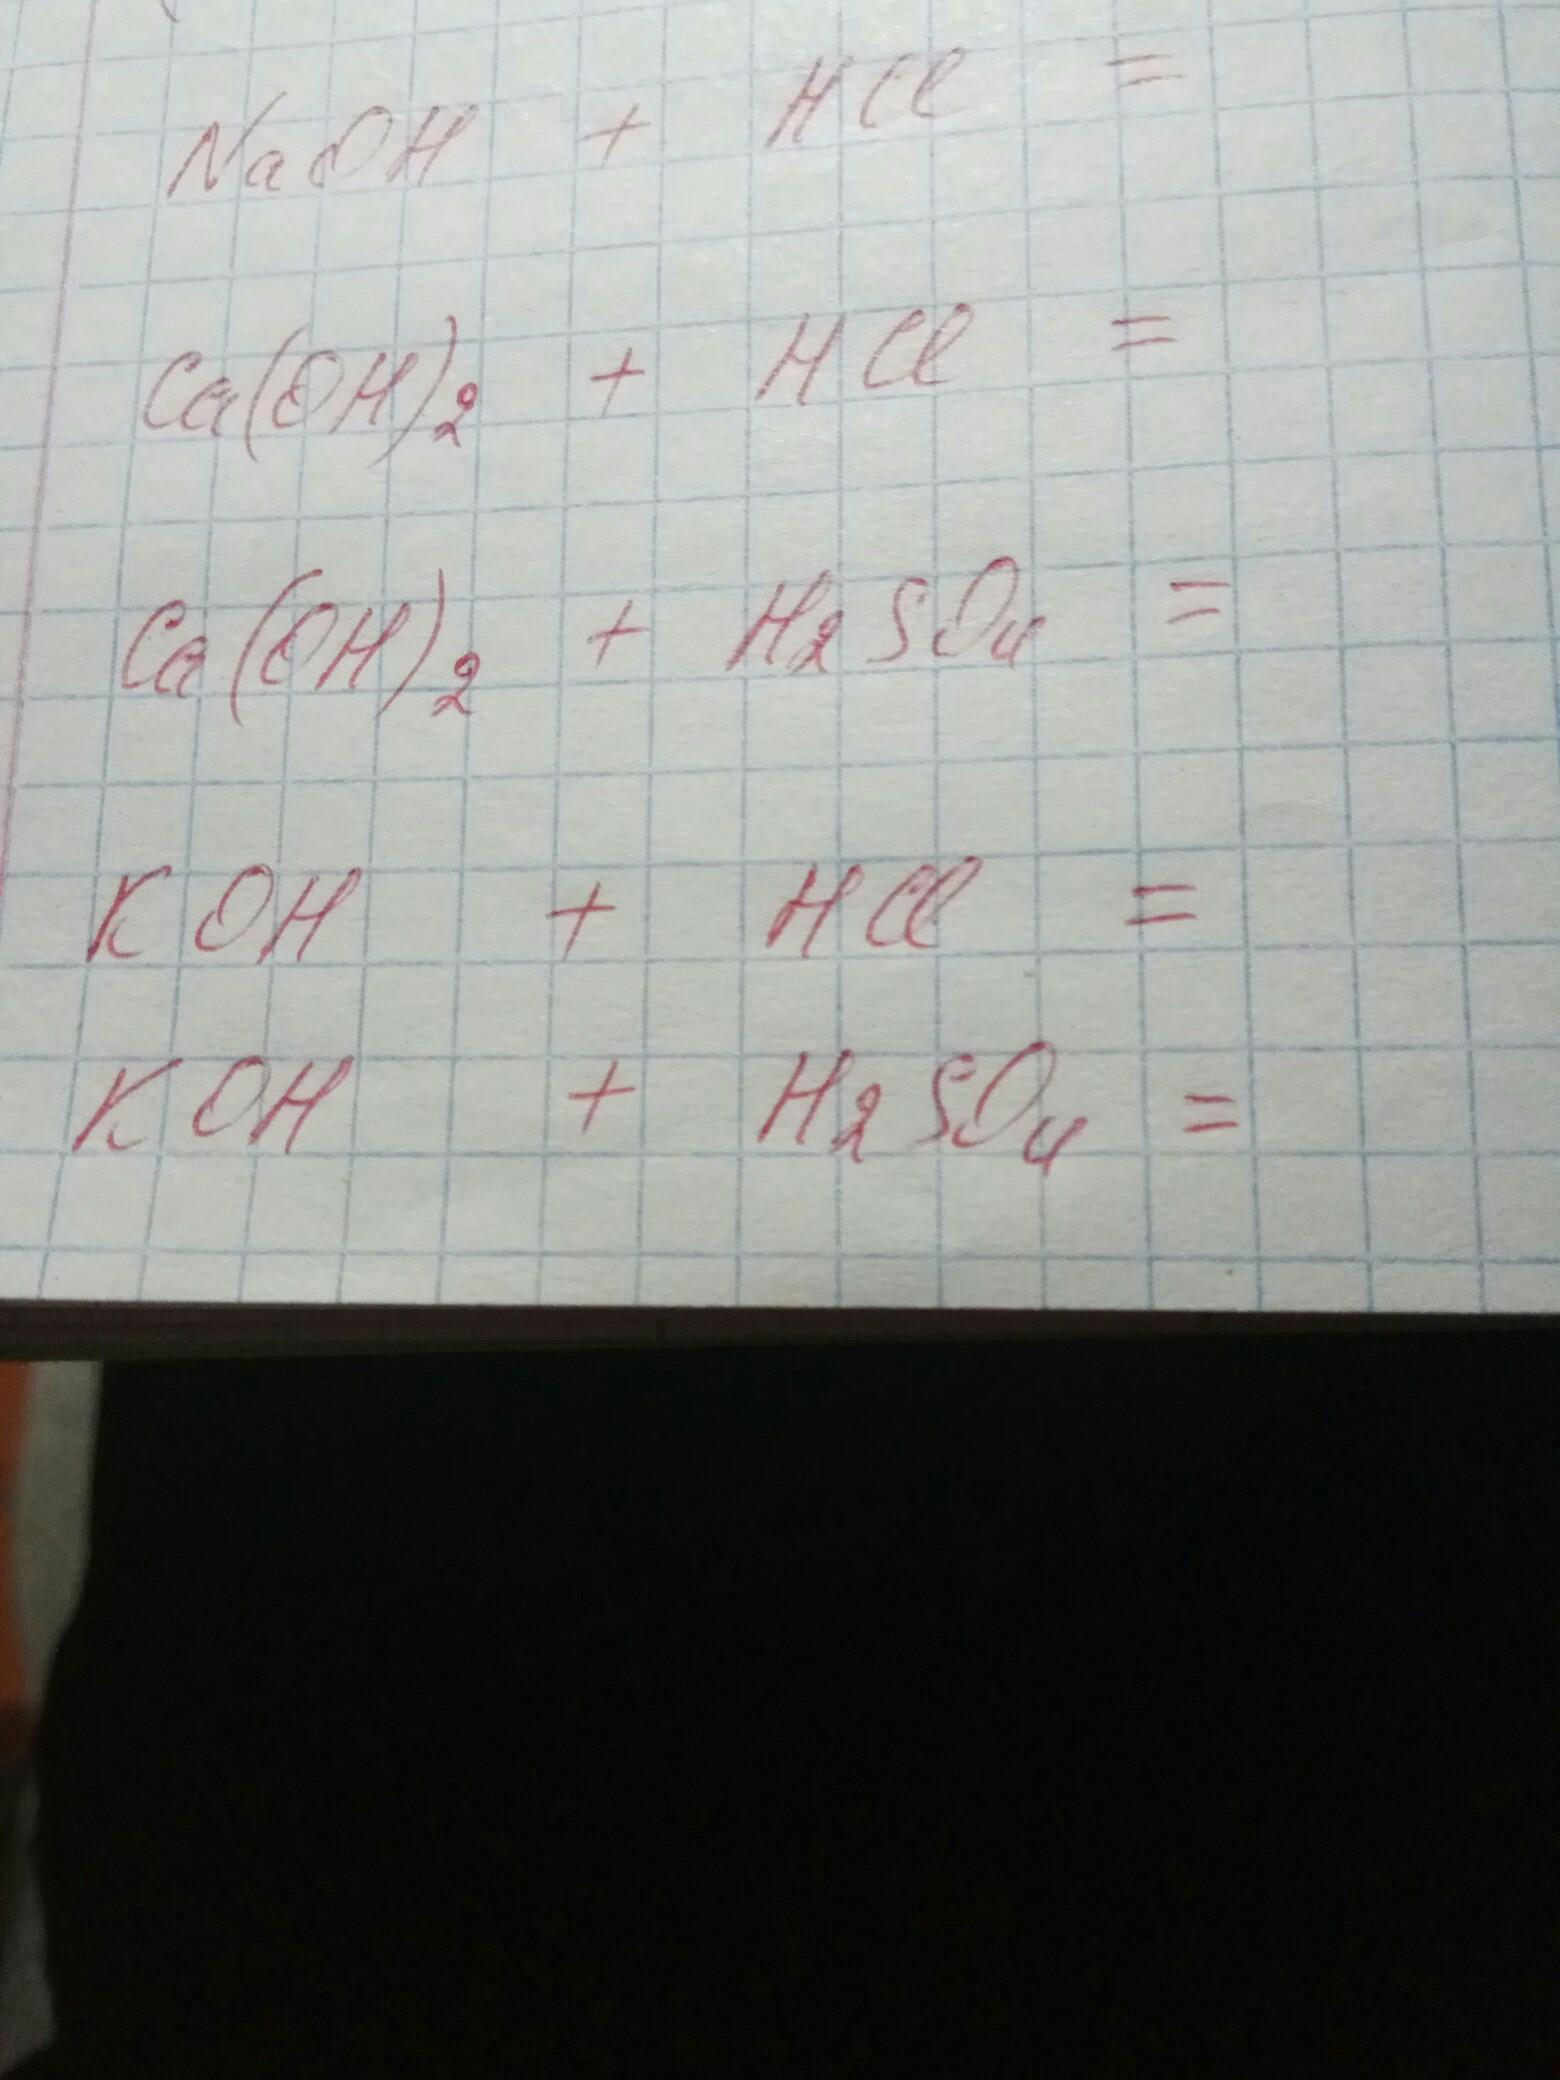 NaOH + HCl =
Ca(OH)₂ + HCl =
Ca(OH)₂ + H₂SO₄ =
KOH + HCl =
KOH + H₂SO₄ =